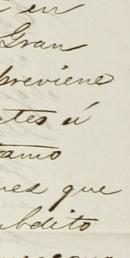 en
Gran
previene
tes ú
tamo
nes que
bdito